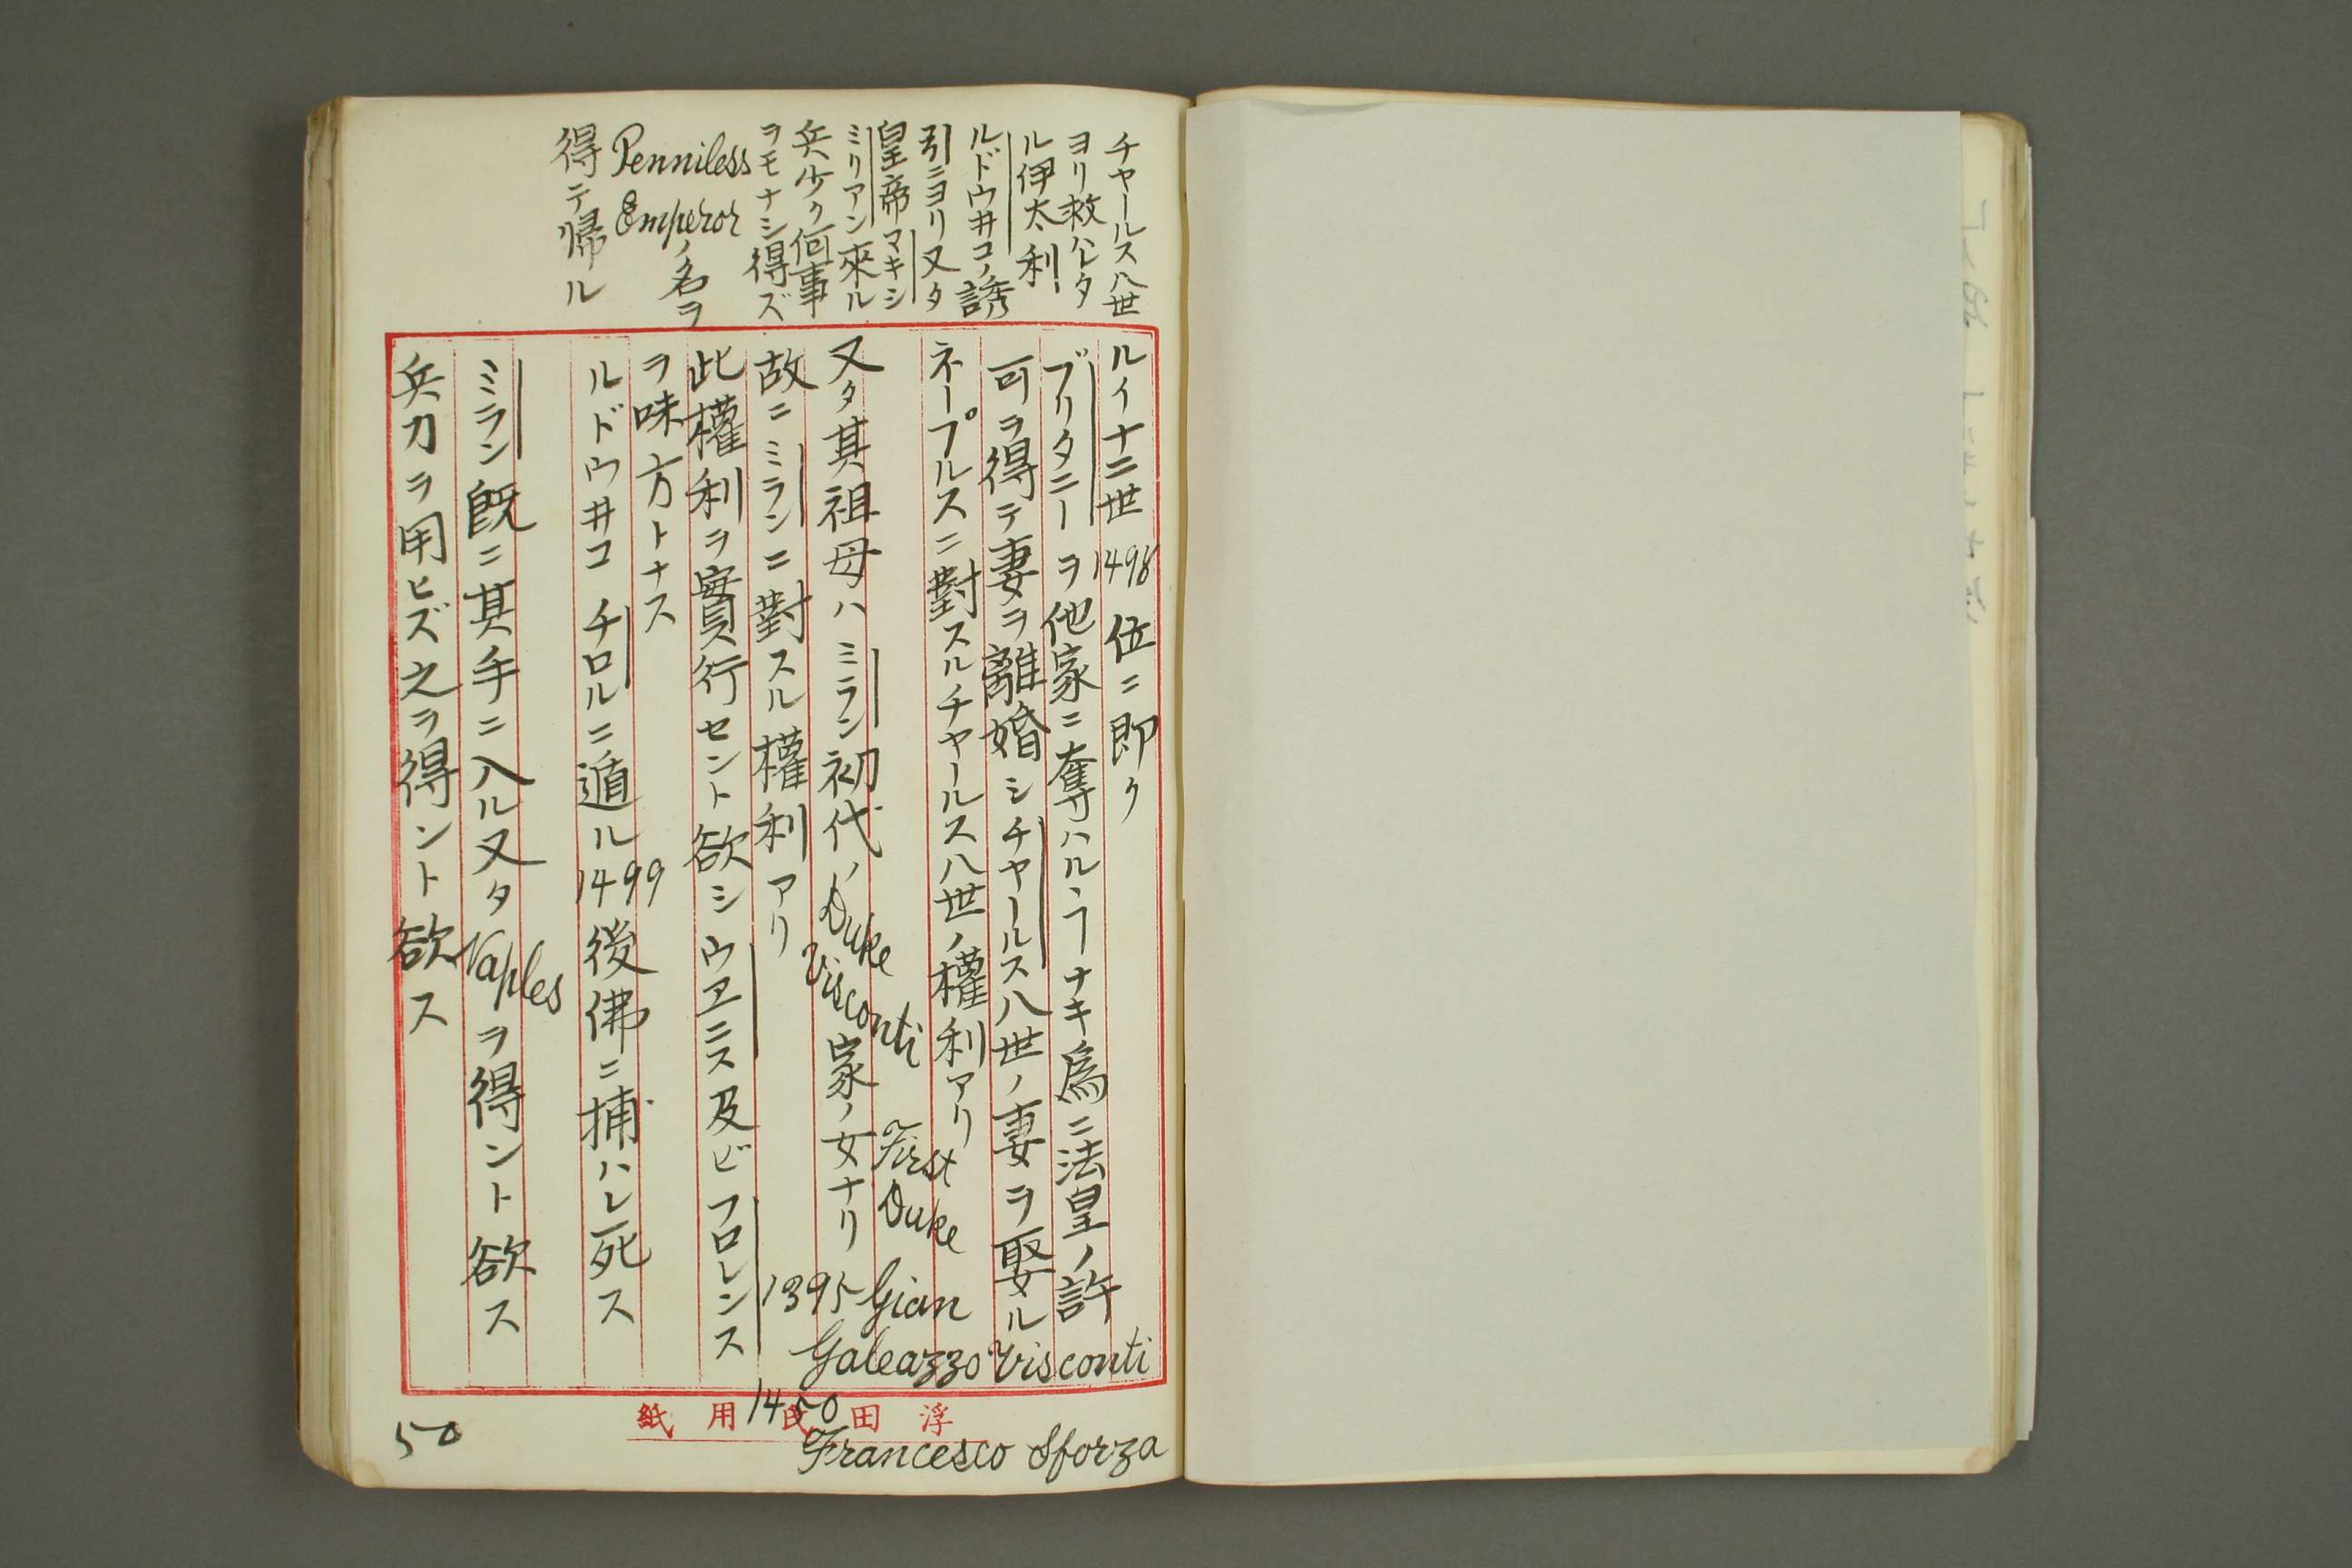 チャールス八世
ヨリ救ハレタ
ル伊太利
ルドウ井コノ誘
引ニヨリ又タ
皇帝マキシ
ミリアン來ル
兵少ク何事
ヲモナシ得ズ
Penniless
Emperorノ名ヲ
得テ帰ル
ルイ十二世1498位ニ即ク
ブリタニーヲ他家ニ奪ハルヽヿナキ為ニ法皇ノ許
可ヲ得テ妻ヲ離婚シチャールス八世ノ妻ヲ娶ル
ネープルスニ對スルチャールス八世ノ權利アリ
又タ其祖母ハミラン初代ノDuke Visconti家ノ女ナリ
First Duke
1395 Gian
Galeazzo Visconti
1450
Francesco Sforza
故ニミランニ對スル權利アリ
此權利ヲ實行セント欲シウエニス及ビフロレンス
ヲ味方トナス
ルドウ井コチロルニ遁ル1499後佛ニ捕ハレ死ス
ミラン既ニ其手ニ入ル又タNaplesヲ得ント欲ス
兵力ヲ用ヒズ之ヲ得ント欲ス
浮田氏用紙
50